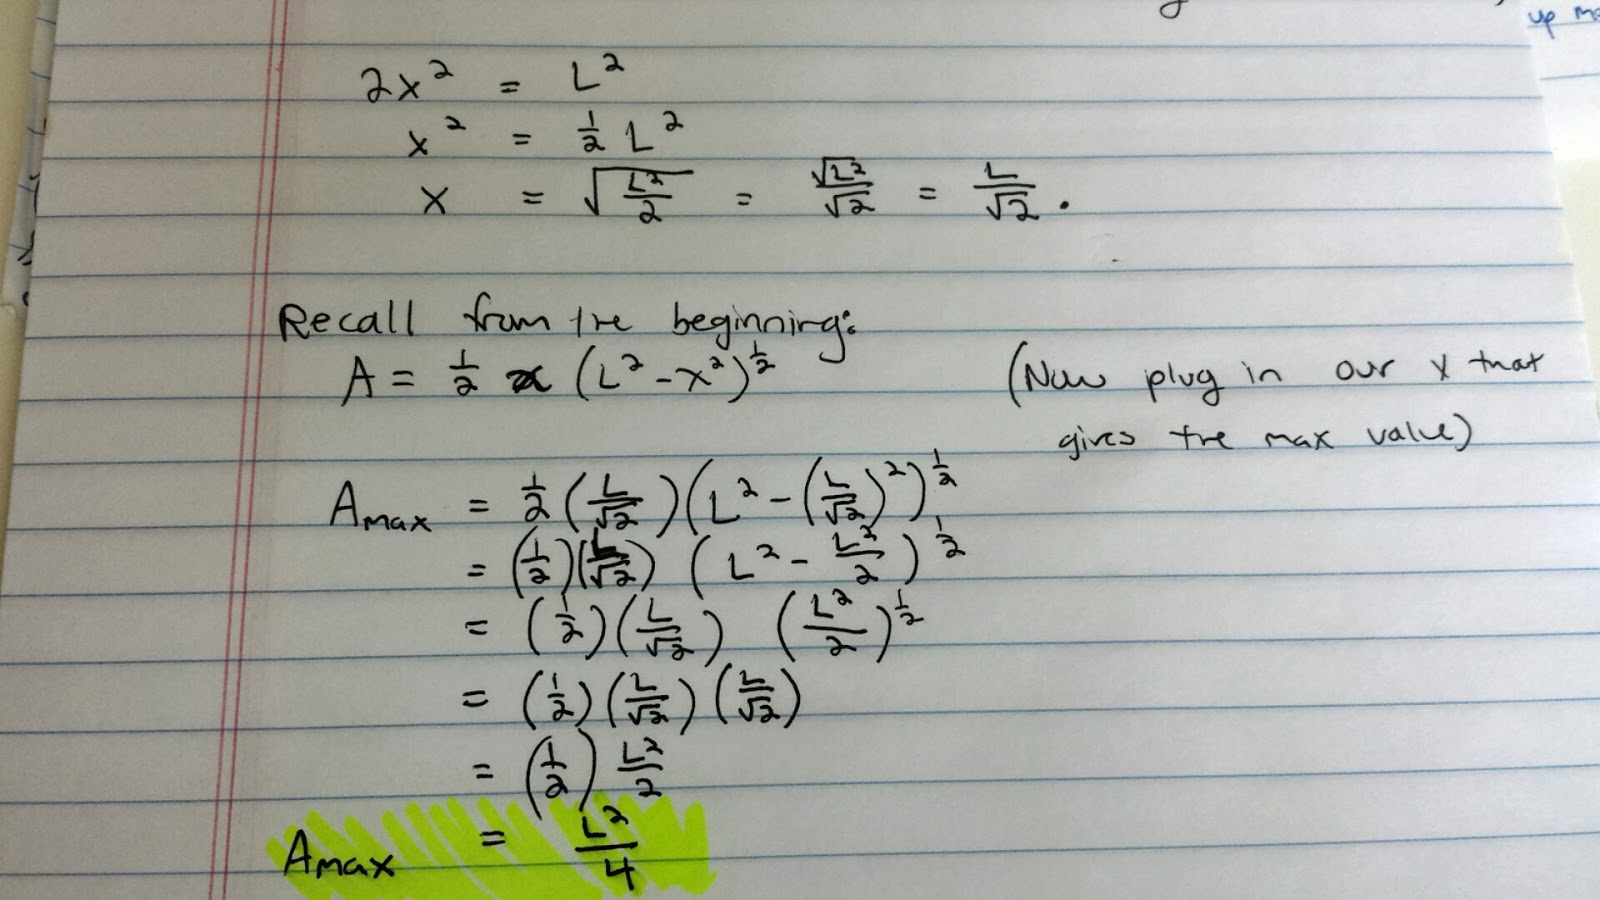 up
2x² = L²
x² = 1/2 L²
x = √(L²/2) = √L²/√2 = L/√2 .
Recall from the beginning:
A = 1/2 x (L² - x²)^1/2 (Now plug in our x that
gives the max value)
Amax = 1/2 (L/√2) (L² - (L/√2)²)^1/2
= (1/2)(L/√2) (L² - L²/2)^1/2
= (1/2)(L/√2) (L²/2)^1/2
= (1/2)(L/√2)(L/√2)
= (1/2) L²/2
Amax = L²/4